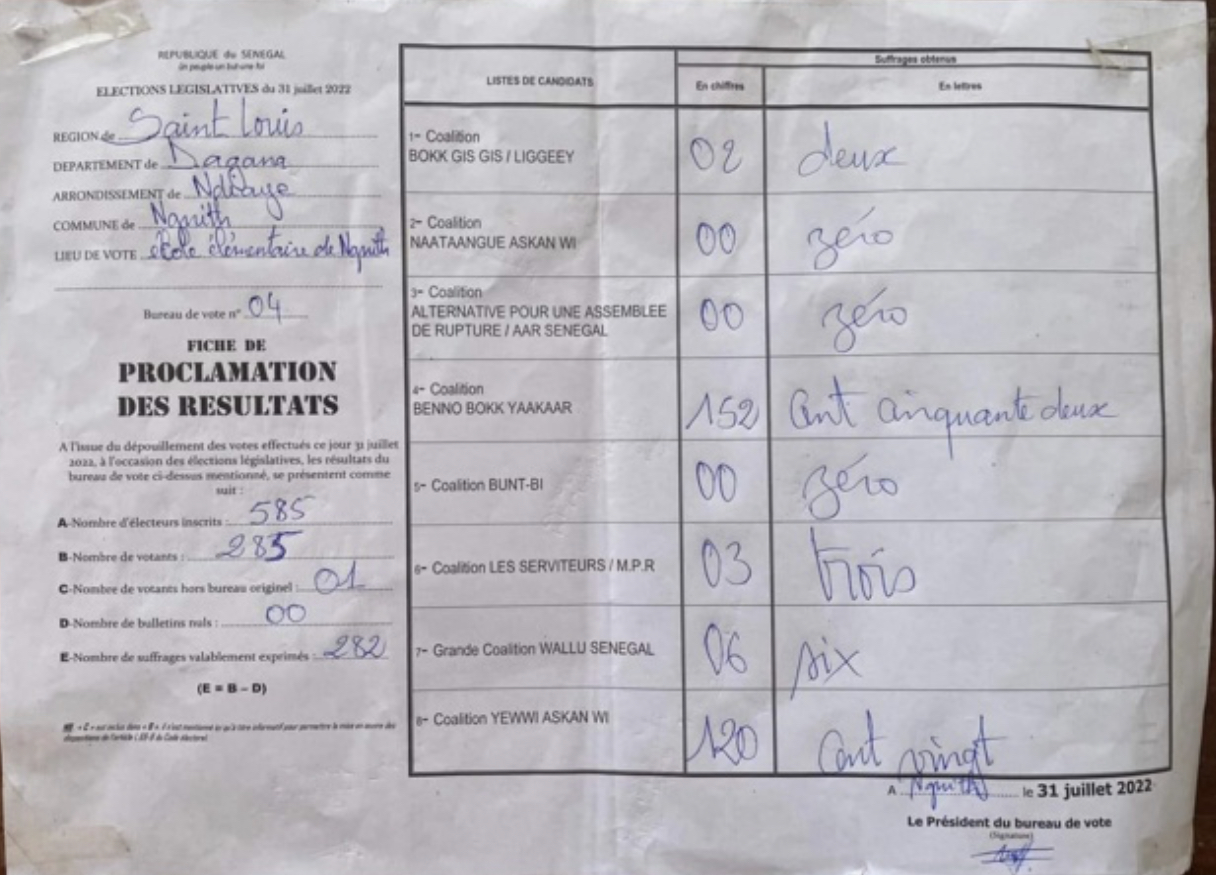 REPUBLIQUE du SENEGAL
Un peuple un but une foi
ELECTIONS LEGISLATIVES du 31 juillet 2022
REGION de Saint Louis
DEPARTEMENT de Dagana
ARRONDISSEMENT de Ndiaye
COMMUNE de Ngnith
LIEU DE VOTE école élémentaire de Ngnith
Bureau de vote n° 04
FICHE DE
PROCLAMATION
DES RESULTATS
A l'issue du dépouillement des votes effectués ce jour 31 juillet
2022, à l'occasion des élections législatives, les résultats du
bureau de vote ci-dessus mentionné, se présentent comme
suit :
A-Nombre d'électeurs inscrits : 585
B-Nombre de votants : 285
C-Nombre de votants hors bureau originel : 01
D-Nombre de bulletins nuls : 00
E-Nombre de suffrages valablement exprimés : 282
(E = B – D)
LISTES DE CANDIDATS
Suffrages obtenus
En chiffres En lettres
1- Coalition
BOKK GIS GIS / LIGGEEY 02 deux
2- Coalition
NAATAANGUE ASKAN WI 00 zéro
3- Coalition
ALTERNATIVE POUR UNE ASSEMBLEE
DE RUPTURE / AAR SENEGAL 00 zéro
4- Coalition
BENNO BOKK YAAKAAR 152 Cent cinquante deux
5- Coalition BUNT-BI 00 zéro
6- Coalition LES SERVITEURS / M.P.R 03 trois
7- Grande Coalition WALLU SENEGAL 06 six
8- Coalition YEWWI ASKAN WI 120 Cent vingt
A Ngnith le 31 juillet 2022
Le Président du bureau de vote
(Signature)